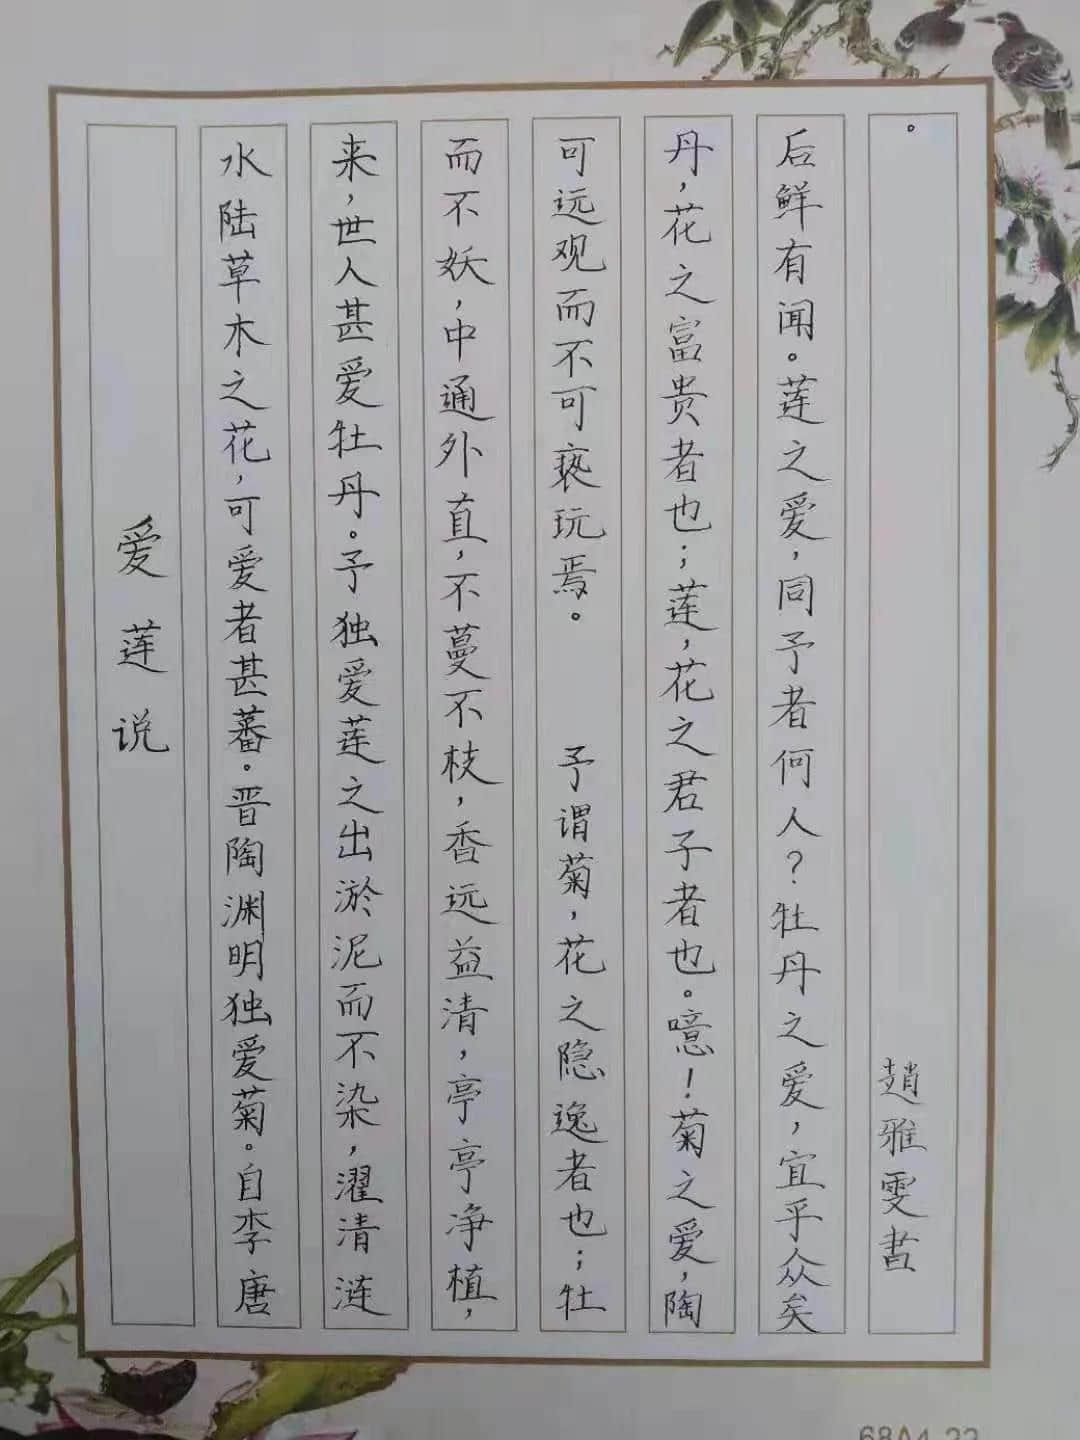 爱莲说
水陆草木之花，可爱者甚蕃。晋陶渊明独爱菊。自李唐
来，世人甚爱牡丹。予独爱莲之出淤泥而不染，濯清涟
而不妖，中通外直，不蔓不枝，香远益清，亭亭净植，
可远观而不可亵玩焉。 予谓菊，花之隐逸者也；牡
丹，花之富贵者也；莲，花之君子者也。噫！菊之爱，陶
后鲜有闻。莲之爱，同予者何人？牡丹之爱，宜乎众矣
。
趙雅雯書